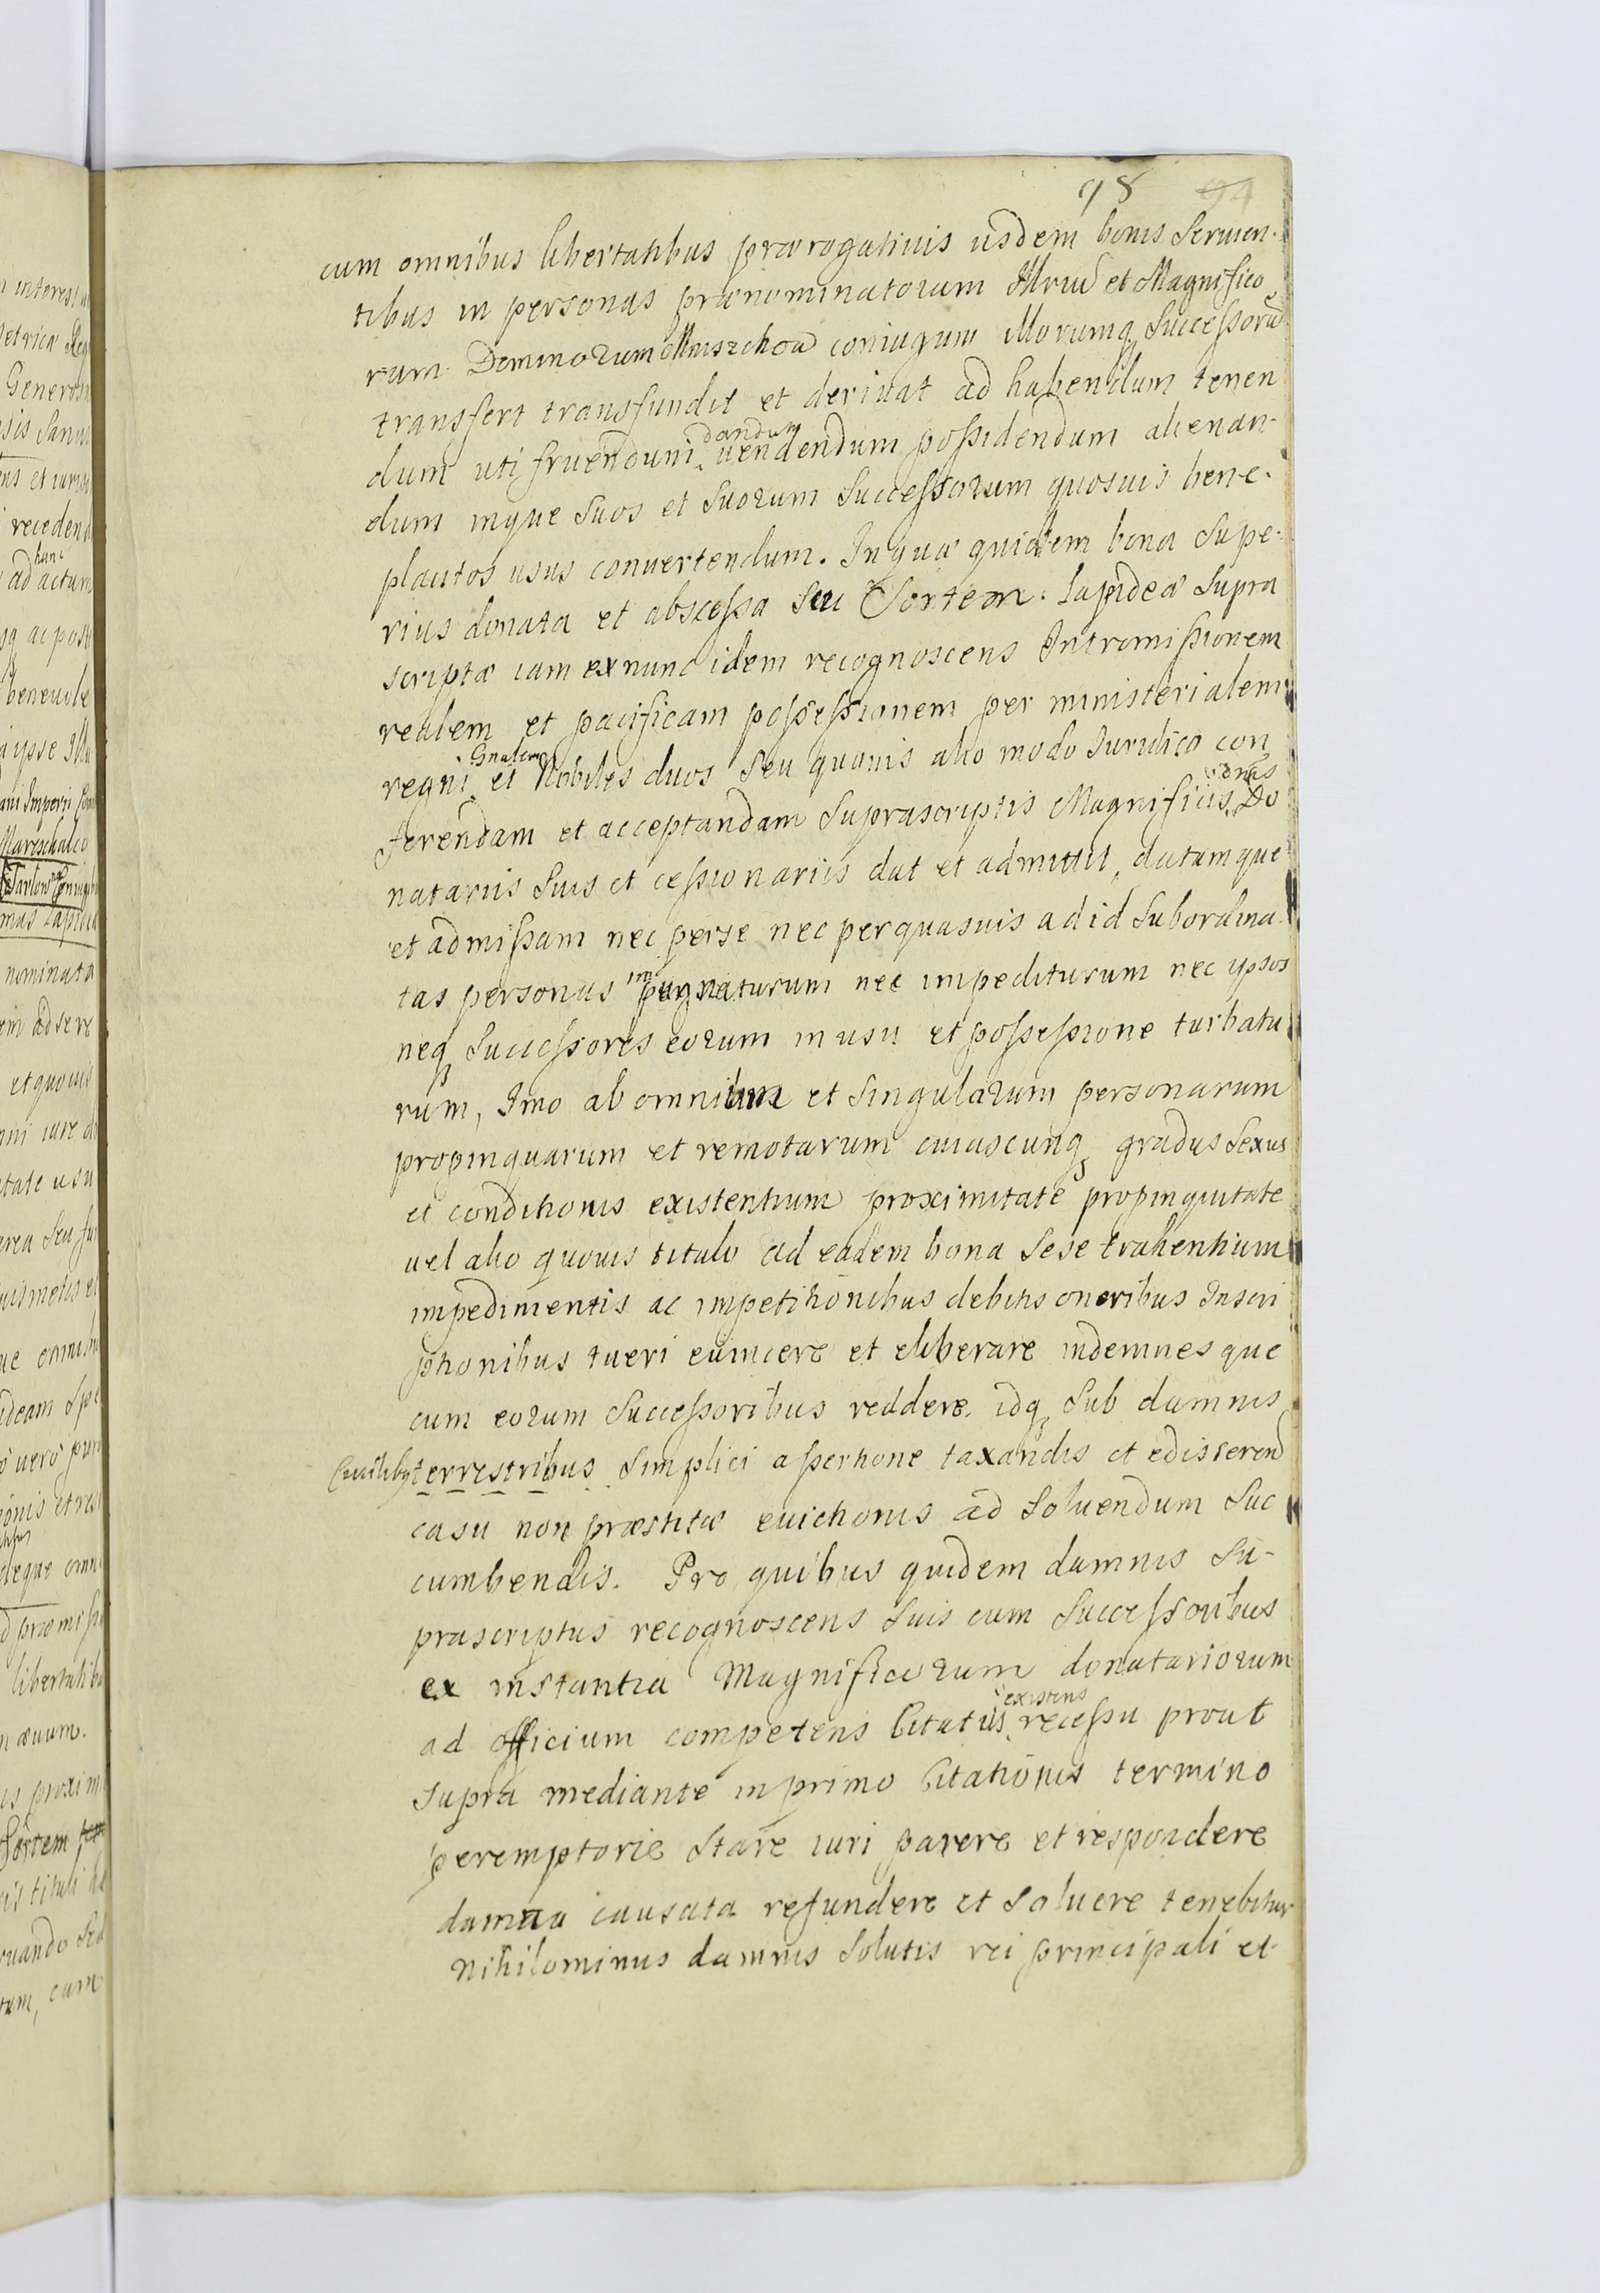 98 94
cum omnibus libertatibus prærogativis iisdem bonis Servien-
tibus in personas prænominatorum Illrium et Magnifico
rum Dominorum Mniszchou coniugum illorumq Successorũ
transfert transfundit et derivat ad habendum tenen
dum uti fruendum dandum vendendum possidendum alienan-
dum inque Suos et Suorum Successorum quosuis bene-
placitos usus convertendum. In quæ quidem bona Supe-
rius donata et abscessa Seu Sortem lapideæ Supra
scriptæ iam ex nunc idem recognoscens Intromissionem
realem et pacificam possessionem per ministerialem
regni Gnalem et Nobiles duos Seu quouis alio modo Iuridico con
ferendam et acceptandam Suprascriptis Magnificis Dnis Do
natariis Suis et cessionariis dat et admittit, datamque
et admissam nec per se nec per quasuis ad id Subordina
tas personas impugnaturum nec impediturum nec ipsos
neq Successores eorum in usu et possessione turbatu
rum, Imo ab omnium et Singularum personarum
propinquarum et remotarum cuiuscunq gradus Sexus
et conditionis existentium proximitate propinquitate
uel alio quouis titulo ad eadem bona Sese trahentium
impedimentis ac impetitionibus debitis oneribus Inscri
ptionibus tueri euincere et eliberare indemnesque
cum eorum Successoribus reddere idq Sub damnis
Ciuilibq terrestribus Simplici assertione taxandis et edisserend
casu non præstitæ euictionis ad Soluendum Suc
cumbendis. Pro quibus quidem damnis Su-
prascriptus recognoscens Suis cum Successoribus
ex instantia Magnificorum donatariorum
ad officium competens Citatus existens recessu prout
Supra mediante in primo Citationis termino
peremptorie Stare iuri parere et respondere
damna causata refundere et Soluere tenebitur
Nihilominus damnis Solutis rei principali et